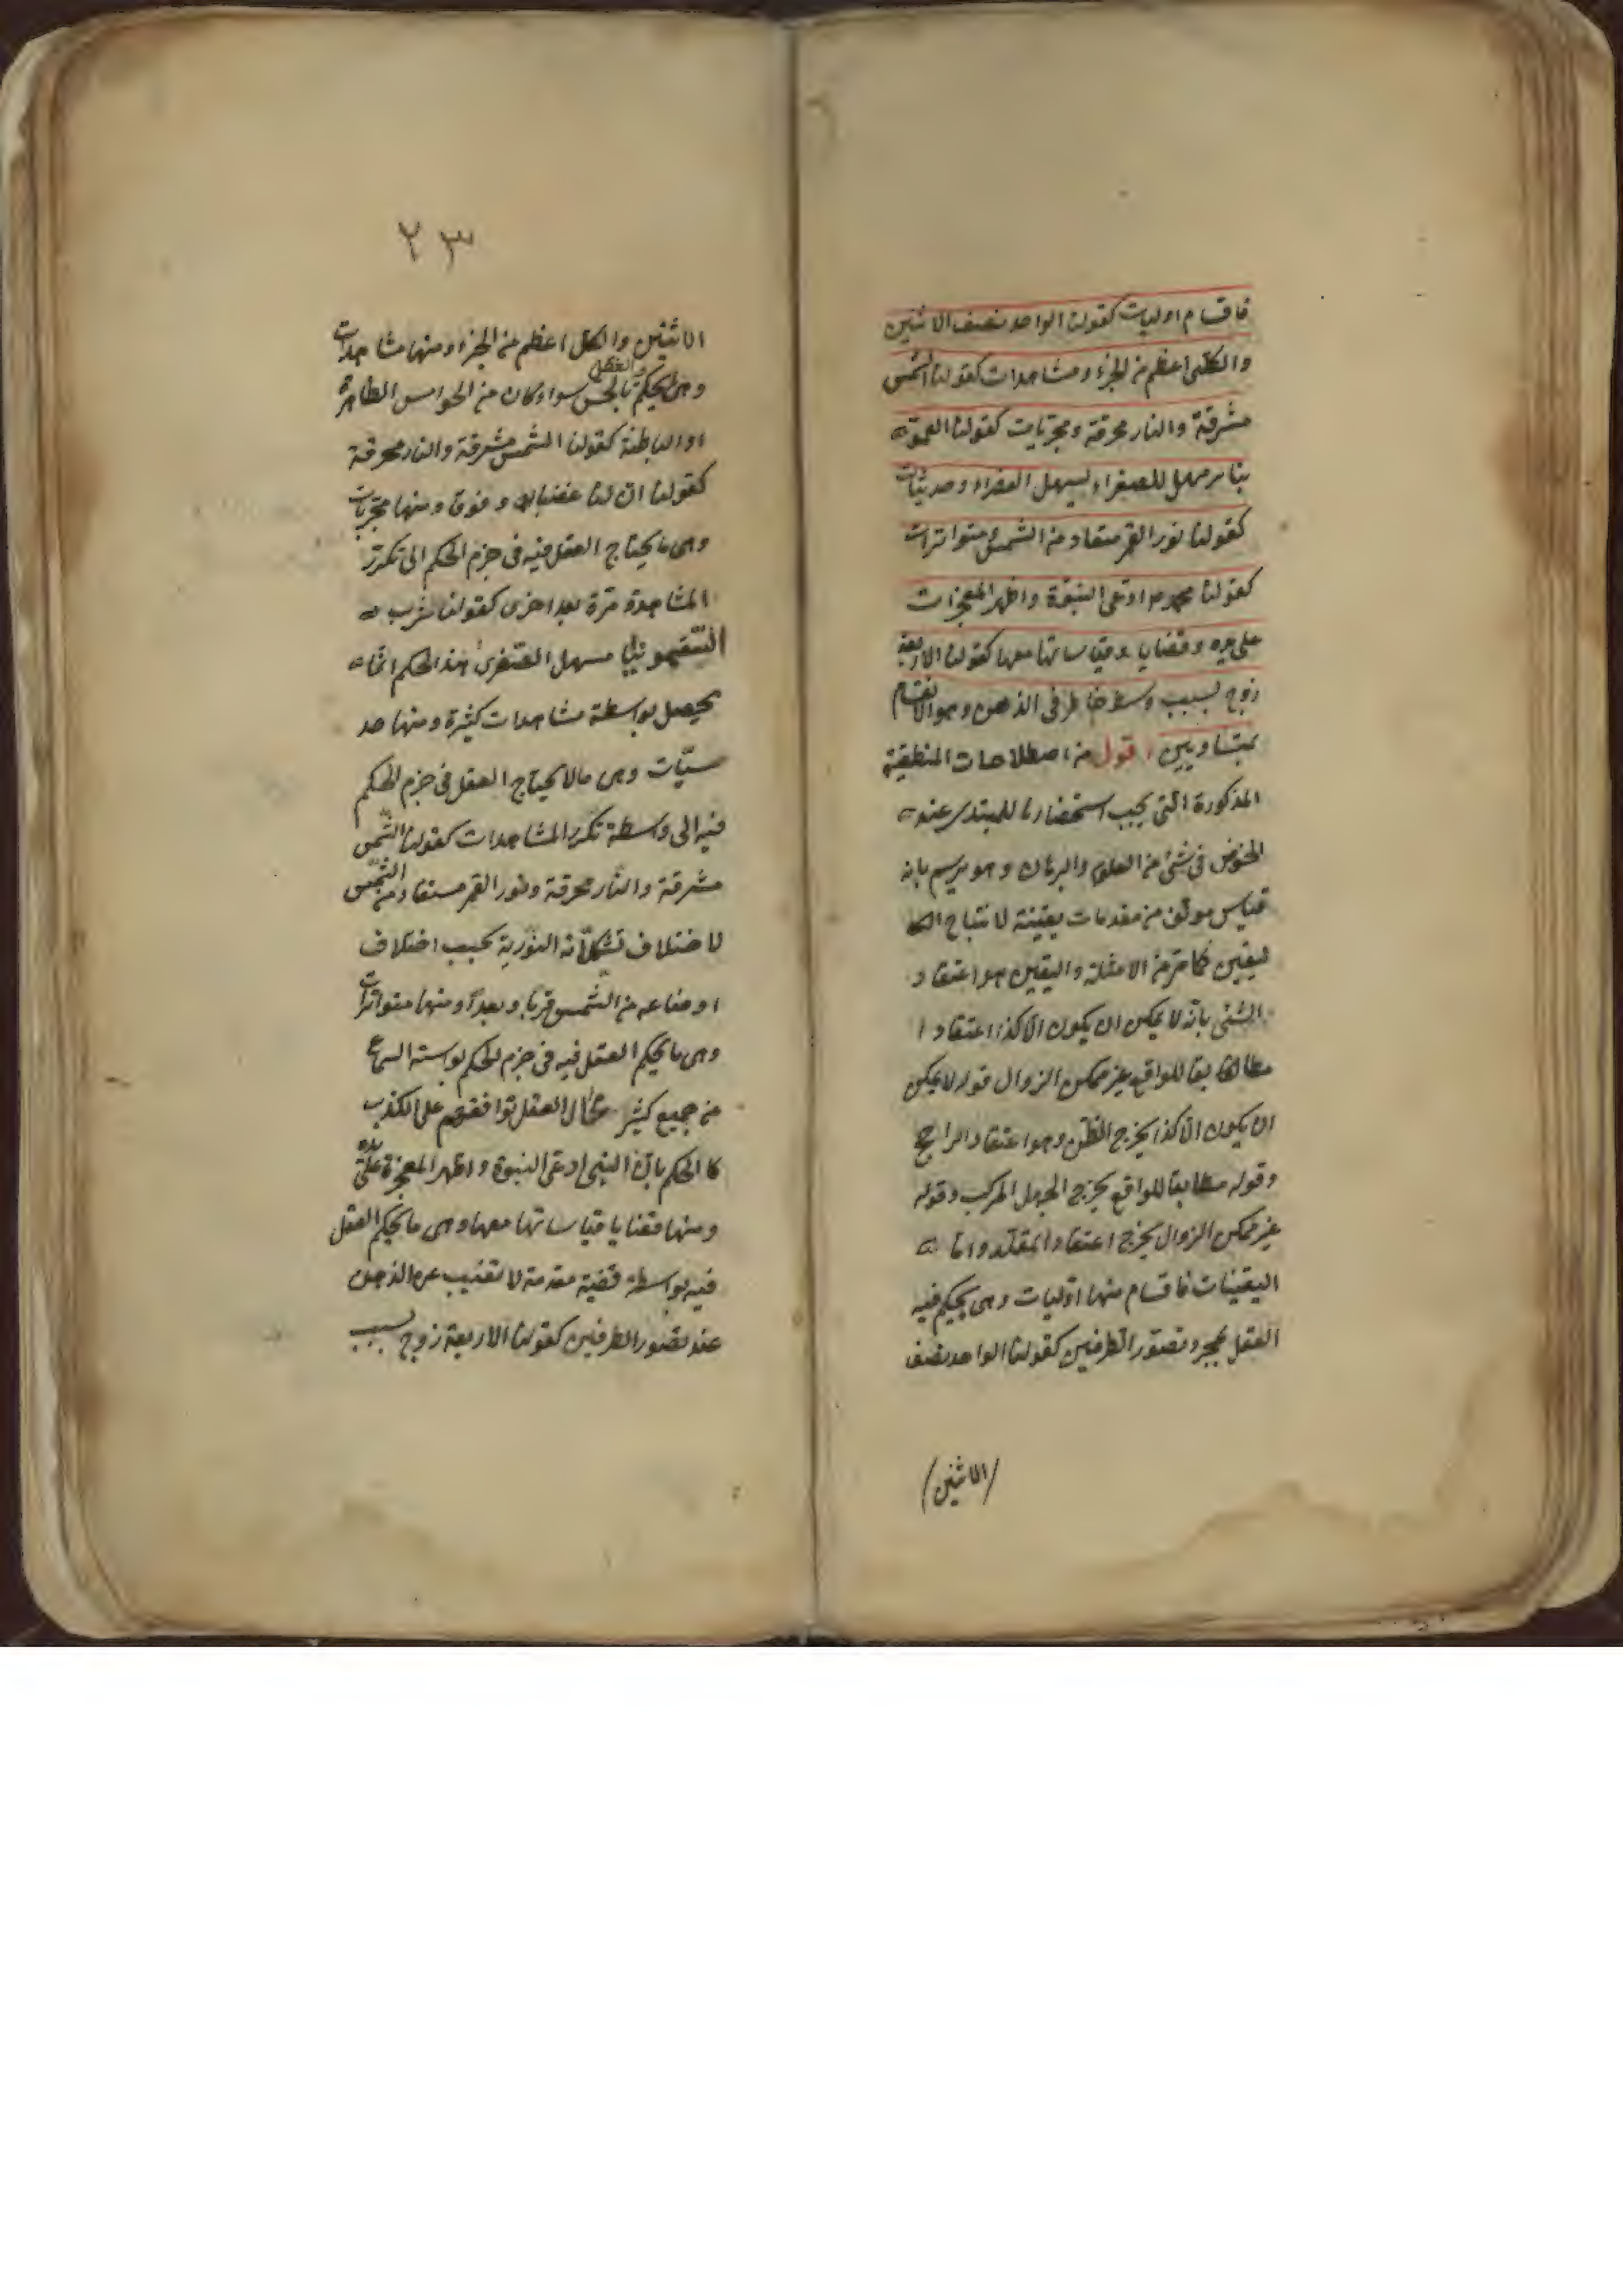 فاقسام اوليات كقولنا الواحد نصف الاثنين
والكلى اعظم من الجزء ومشاهدات كقولنا الشمس
مشرقة والنار محرقة ومجربات كقولنا
مسهل للصفراء وحدسيات
كقولنا نور القمر مستفاد من الشمس ومتواترات
كقولنا محمد ادعى النبوة واظهر المعجزات
على يده وقضايا وقياساتها معها كقولنا الاربعة
زوج لسبب وسط حاضر فى الذهن وهو الانقسام
بمتساويين اقول من اصطلاحات المنطقية
المذكورة التى يجب استحضارها للمبتدى عند
الخوض فى شئ من العلوم والبرهان وهو يرسم بانه
قياس مؤلف من مقدمات يقينية لانتاج
ليقين كما مر من الامثلة واليقين هو اعتقاد
الشئ بانه لا يمكن ان يكون الا كذا اعتقادا
مطابقا للواقع غير ممكن الزوال قوله لا يمكن
ان يكون الا كذا يخرج الظن وهو اعتقاد الراجح
وقوله مطابقا للواقع يخرج الجهل المركب وقوله
غير ممكن الزوال يخرج اعتقاد المقلد واما
اليقينات فاقسام منها اوليات وهى يحكم فيه
العقل بمجرد تصور الطرفين كقولنا الواحد نصف
(الاثنين)
٢٣
الاثنين والكل اعظم من الجزء ومنها مشاهدات
وهى يحكم بالحس والعقل سواء كان من الحواس الظاهرة
او الباطنة كقولنا الشمس مشرقة والنار محرقة
كقولنا ان لنا غضبا وخوفا ومنها مجربات
وهى ما يحتاج العقل فيه فى جزم الحكم الى تكرر
المشاهدة مرة بعد اخرى كقولنا شرب
السقمونيا مسهل الصفرى هذا الحكم انما
يحصل بواسطة مشاهدات كثيرة ومنها حد
سيّات وهى مالا يحتاج العقل فى جزم الحكم
فيه الى واسطة تكرر المشاهدات كقولنا الشمس
مشرقة والنار محرقة ونور القمر مستفاد من الشمس
لاختلاف تشكلاته النورية بحسب اختلاف
اوضاعه من الشمس قربا وبعداً ومنها متواترات
وهى ما يحكم العقل فيه فى جزم الحكم بواسته السماع
من جميع كثير محال العقل توافقهم على الكذب
كا الحكم بان النبى ادعى النبوة واظهر المعجزة على يده
ومنها قضايا قياساتها معها وهى ما يحكم العقل
فيه بواسطة قضية مقدمة لا تغيب عن الذهن
عند تصور الطرفين كقولنا الاربعة زوج لسبب